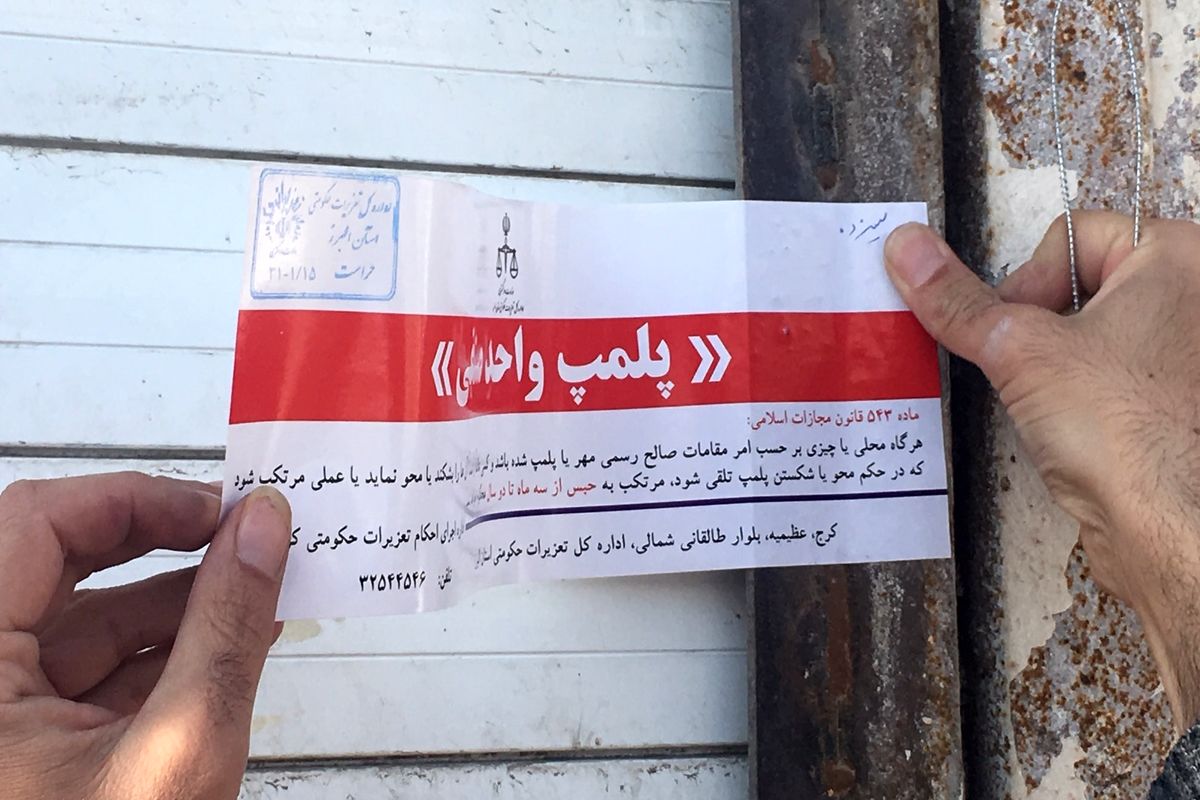 اداره کل تعزیرات حکومتی
استان البرز
حراست ۳۱-۱/۱۵
سیزده
« پلمپ واحد صنفی »
ماده ۵۴۳ قانون مجازات اسلامی:
هرگاه محلی یا چیزی بر حسب امر مقامات صالح رسمی مهر یا پلمپ شده باشد و کسی را بشکند یا محو نماید یا عملی مرتکب شود
که در حکم محو یا شکستن پلمپ تلقی شود، مرتکب به حبس از سه ماه تا دو سال
کرج، عظیمیه، بلوار طالقانی شمالی، اداره کل تعزیرات حکومتی اجرای احکام تعزیرات حکومتی
تلفن: ۳۲۵۴۴۵۴۶